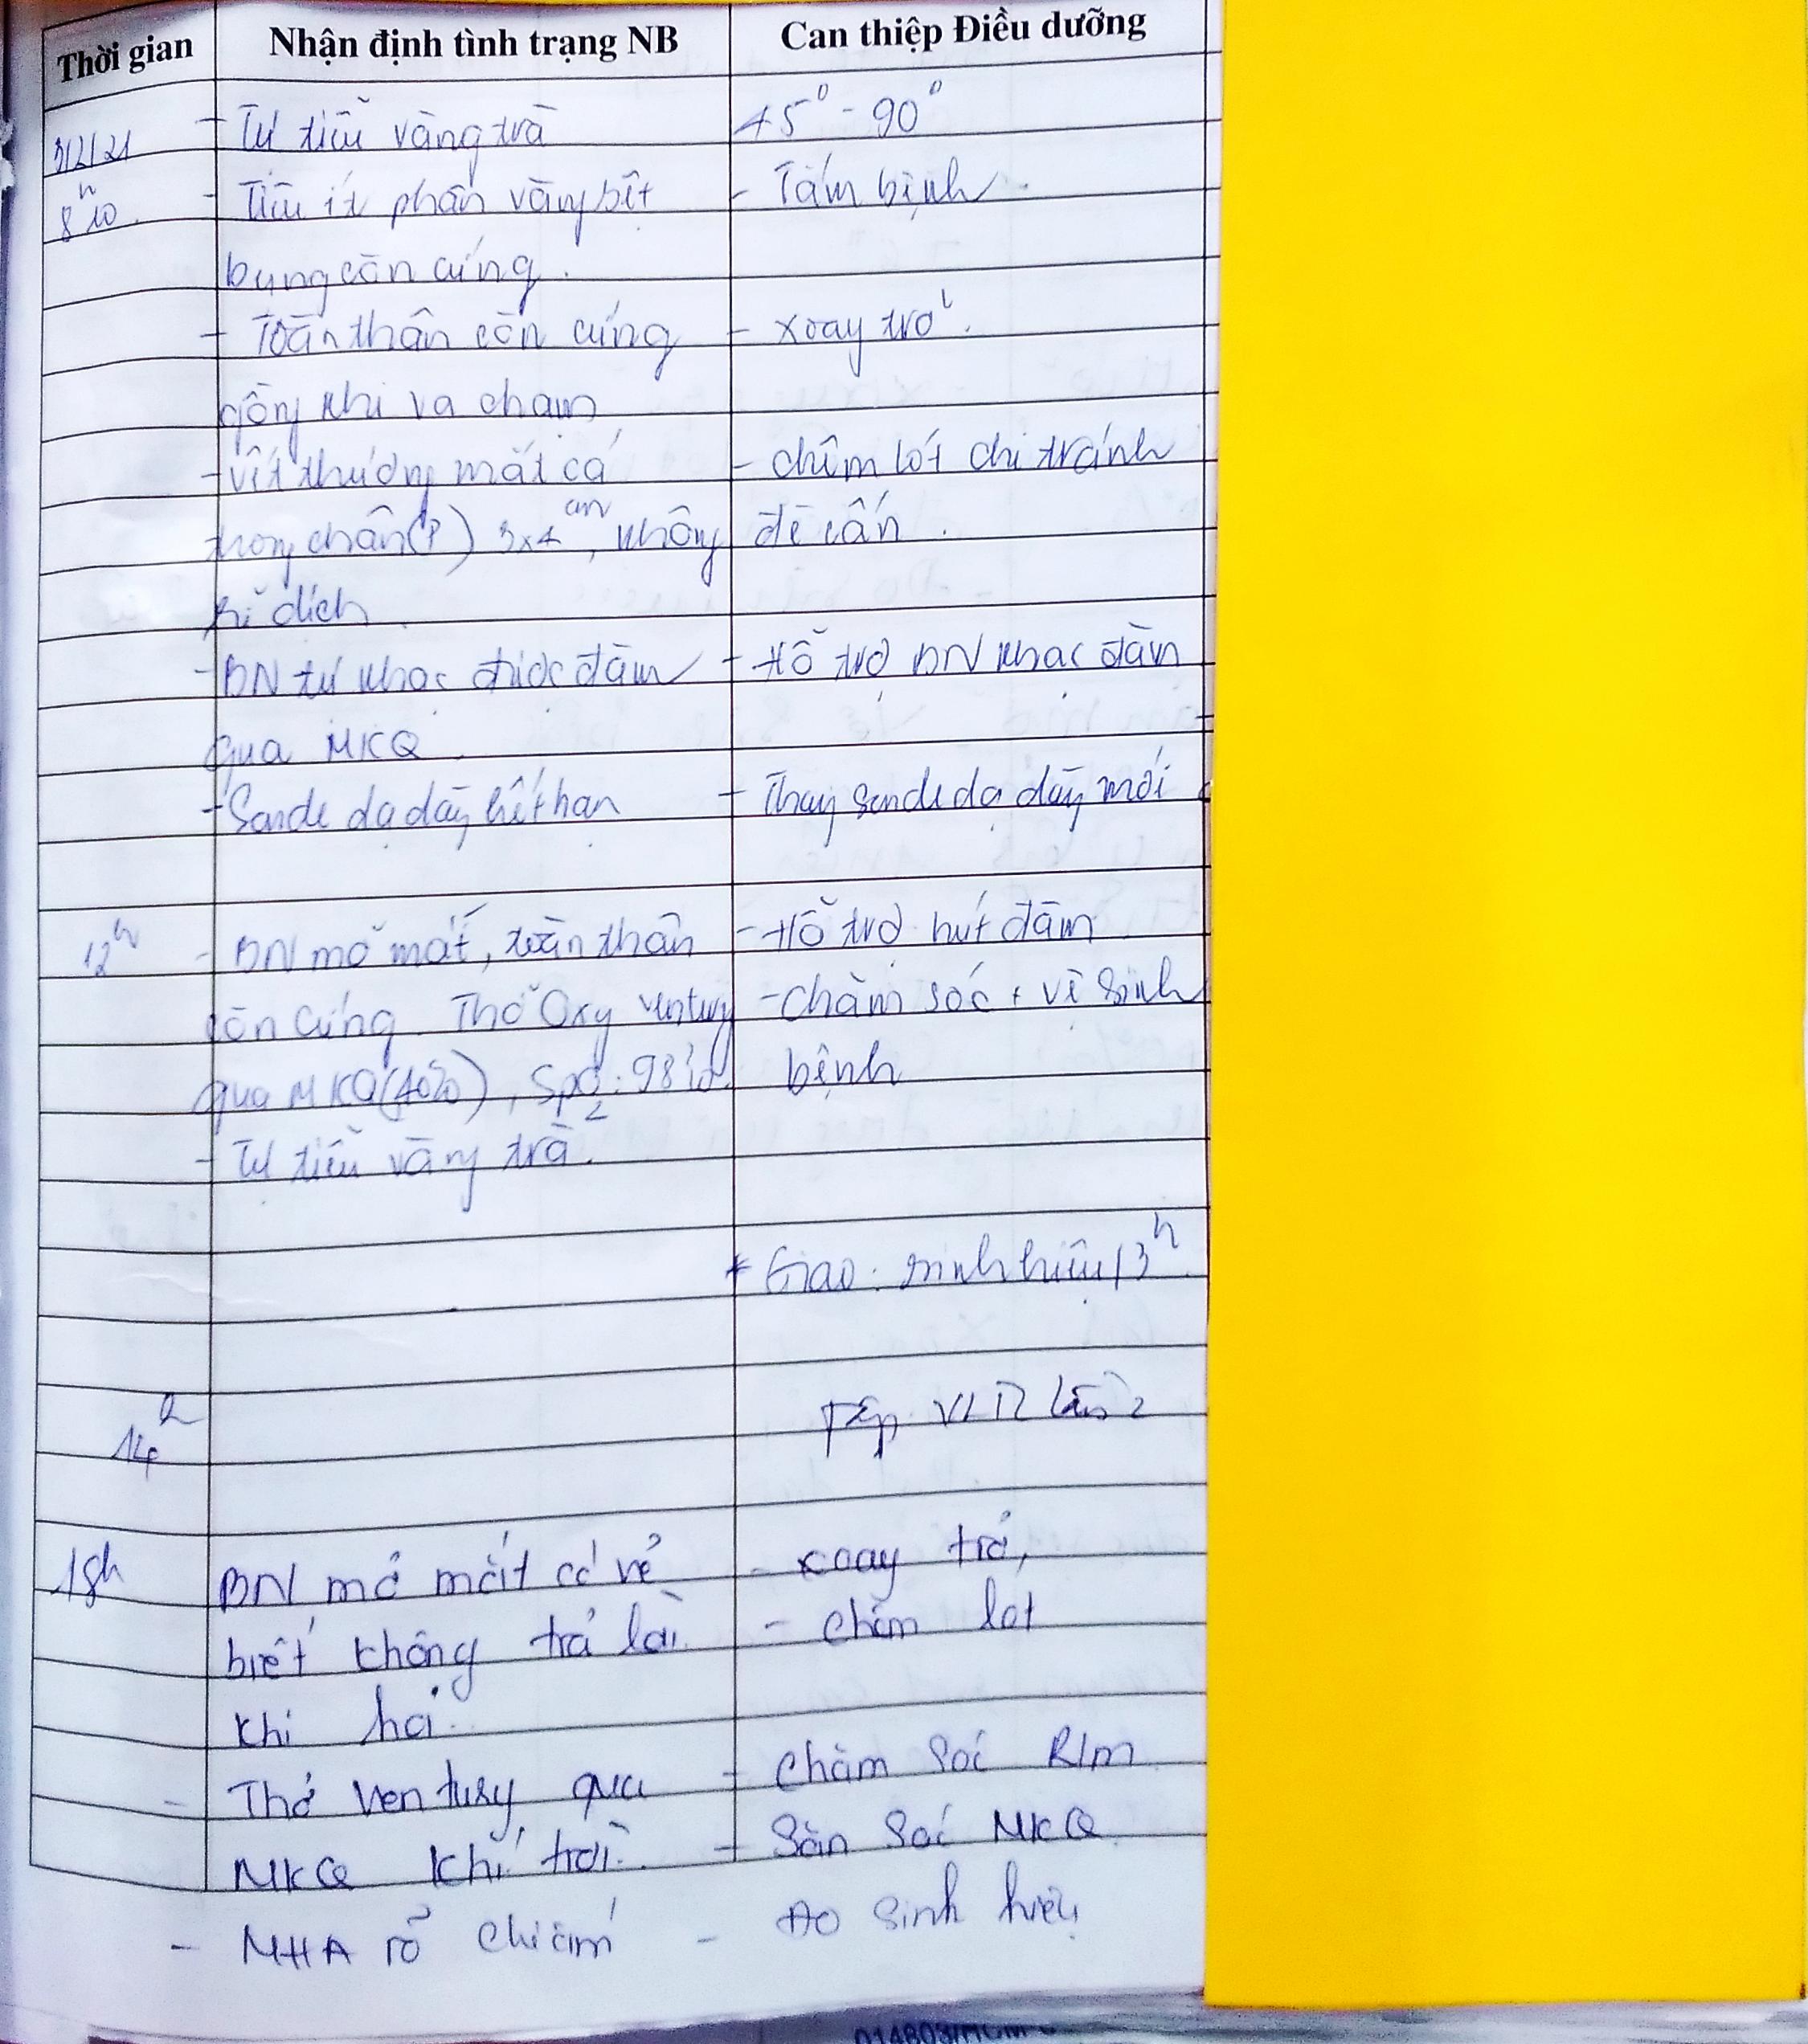 Thời gian | Nhận định tình trạng NB | Can thiệp Điều dưỡng
3/2/21 | - Tự tiểu vàng trà | 45° - 90°
8h10 | - Tiêu ít phân vàng bệt | - Tắm bệnh.
bụng còn cứng.
- Toàn thân còn cứng | - xoay trở.
gồng khi va chạm
- vết thương mắt cá | - chêm lót chi tránh
trong chân (P) 3x4cm, không | đè cấn.
rỉ dịch
- BN tự khạc được đàm | - Hỗ trợ BN khạc đàm
qua MKQ.
- Sonde dạ dày hết hạn | - Thay sonde dạ dày mới
12h | - BN mở mắt, toàn thân | - Hỗ trợ hút đàm
còn cứng. Thở Oxy ventury | - chăm sóc + vệ sinh
qua MKQ (40%), SpO2: 98% | bệnh
- Tự tiểu vàng trà.
* Giao: sinh hiệu 13h.
14h | Tập VLTL lần 2
18h | BN mở mắt có vẻ | - xoay trở,
biết không trả lời | - chêm lót
khi hỏi.
- Thở ventury qua | - Chăm sóc RLM
MKQ khí trời. | - Săn sóc MKQ
- NHA rõ | - Đo sinh hiệu